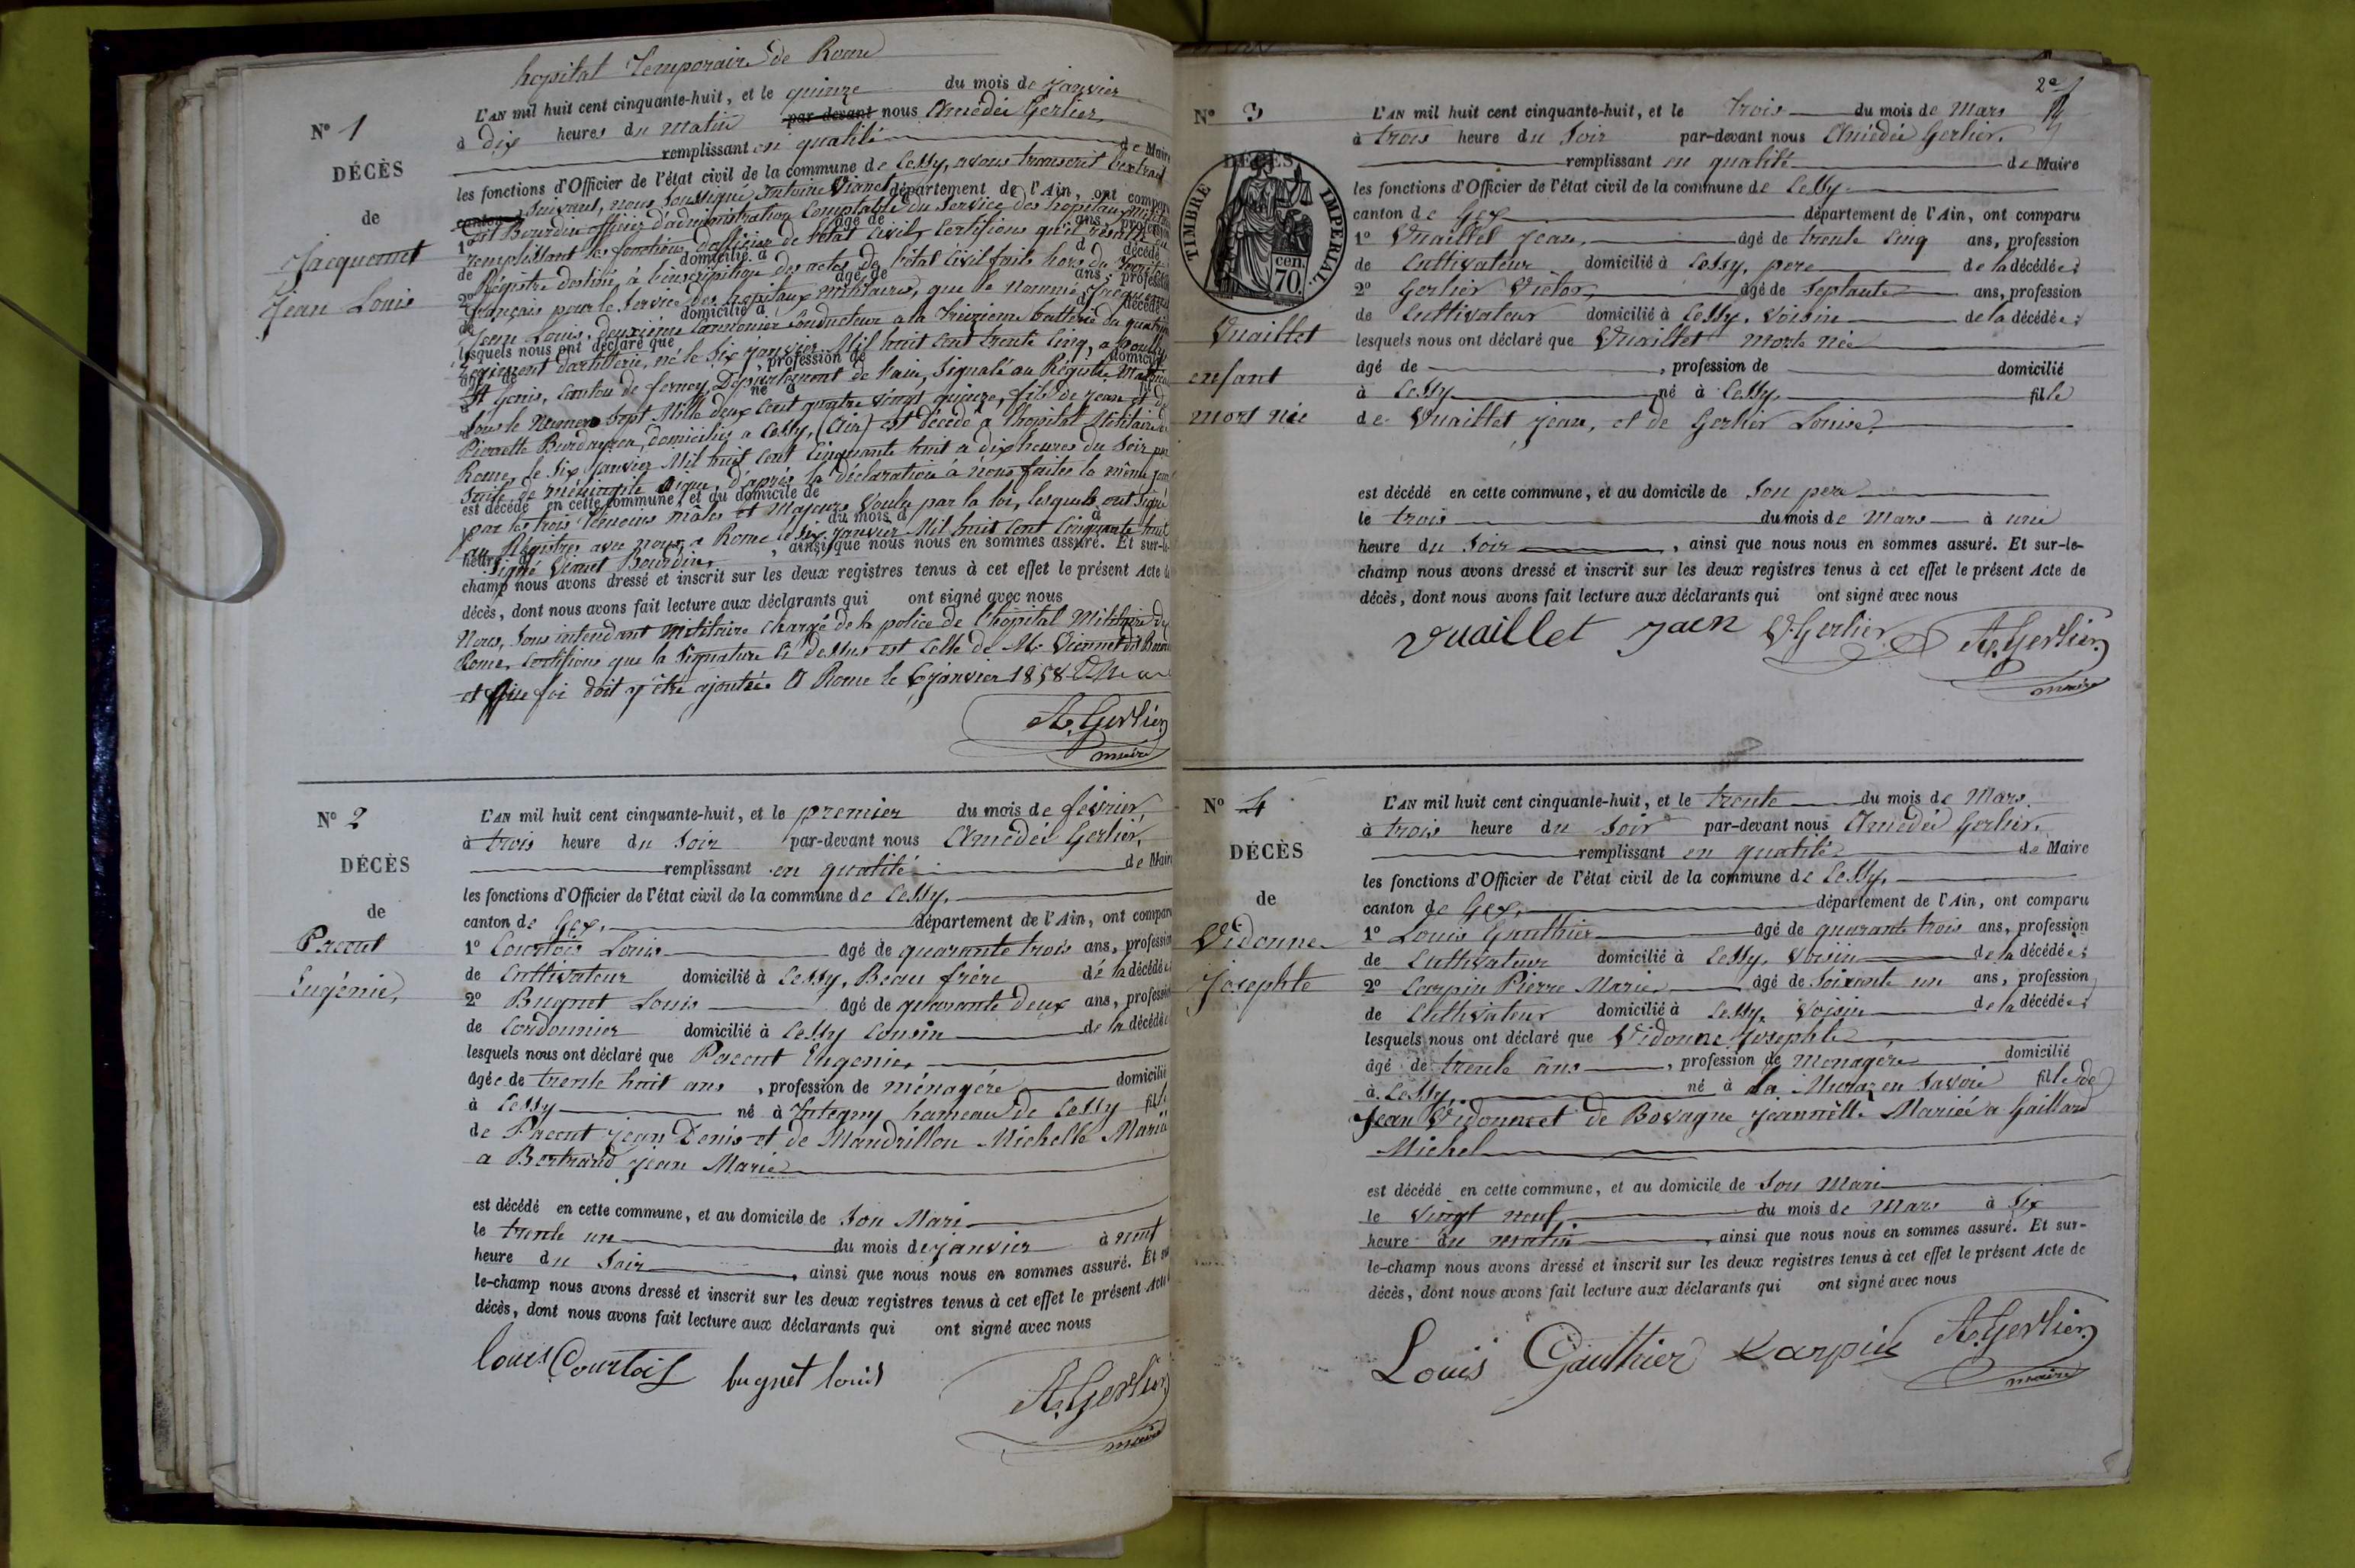 hopital Temporaire de Rome
N° 1
DÉCÈS
de
Jacquemet
Jean Louis
L'AN mil huit cent cinquante-huit, et le quinze du mois de janvier
à dix heures du matin par-devant nous Amédée Gerlier,
remplissant en qualité de Maire
les fonctions d'Officier de l'état civil de la commune de Cessy, avons transcrit l'extrait
suivant, nous soussigné Antoine Vianet département de l'Ain, ont comparu
dit Bourdin officier d'administration Comptable du Service des hopitaux
remplissant les fonctions d'officier de l'état civil, Certifions qu'il résulte du
Registre destiné à l'inscription des actes de l'état civil faits hors du
français pour le Service des hopitaux militaires, que le nommé Jacquemet
Jean Louis, deuxième canonnier conducteur a la treizième batterie du
Régiment d'artillerie, né le Six janvier Mil huit cent trente cinq, a Pouilly
St Genis, Canton de ferney, Département de l'ain, Signalé au Registre
sous le Numero Sept Mille deux cent quatre vingt quinze, fils de Jean et de
Pierrette domiciliés a Cessy, (Ain) est décédé a l'hopital Militaire de
Rome, le Six Janvier Mil huit cent Cinquante huit a dix heures du Soir par
Suite de méningite aigue, d'après la déclaration à nous faites le même jour
par les trois témoins mâles et Majeurs Voulu par la loi, lesquels ont Signé
au Registre avec nous, a Rome le Six janvier Mil huit Cent Cinquante huit
Signé Vianet Bourdin,
ainsi que nous nous en sommes assuré. Et sur-le-
champ nous avons dressé et inscrit sur les deux registres tenus à cet effet le présent Acte de
décès, dont nous avons fait lecture aux déclarants qui ont signé avec nous
Nous, Sous intendant militaire chargé de la police de l'hopital Militaire de
Rome, Certifions que la Signature ci dessus est celle de Mr Viennet dit
et que foi doit y être ajoutée A Rome le 6 janvier 1858
A. Gerlier
maire
N° 2
DÉCÈS
de
Pacout
Eugénie,
L'AN mil huit cent cinquante-huit, et le premier du mois de février,
à trois heure du Soir par-devant nous Amédée Gerlier,
remplissant en qualité de Maire
les fonctions d'Officier de l'état civil de la commune de Cessy,
canton de Gex, département de l'Ain, ont comparu
1° Courtois Louis âgé de quarante trois ans, profession
de Cultivateur domicilié à Cessy, Beau frère de la décédée
2° Bugnet Louis âgé de quarante deux ans, profession
de Cordonnier domicilié à Cessy Cousin de la décédée
lesquels nous ont déclaré que Pacout Eugenie,
âgée de trente huit ans, profession de ménagère domicilié
à Cessy né à hameau de Cessy fille
de Pacout Jean Denis et de Mandrillon Michelle Mariée
a Bertrand jean Marie
est décédé en cette commune, et au domicile de Son Mari
le trente un du mois de janvier à neuf
heure du Soir, ainsi que nous nous en sommes assuré. Et sur-
le-champ nous avons dressé et inscrit sur les deux registres tenus à cet effet le présent Acte
décès, dont nous avons fait lecture aux déclarants qui ont signé avec nous
louis Courtois bugnet louis
A. Gerlier
maire
2e
N° 3
DÉCÈS
TIMBRE IMPERIAL
cen. 70
Vuaillet
enfant
mort née
L'AN mil huit cent cinquante-huit, et le trois du mois de Mars
à trois heure du Soir par-devant nous Amédée Gerlier,
remplissant en qualité de Maire
les fonctions d'Officier de l'état civil de la commune de Cessy
canton de Gex département de l'Ain, ont comparu
1° Vuaillet Jean, âgé de trente Cinq ans, profession
de Cultivateur domicilié à Cessy, pere de la décédée;
2° Gerlier Victor, âgé de Septante ans, profession
de Cultivateur domicilié à Cessy, Voisin de la décédée;
lesquels nous ont déclaré que Vuaillet morte née
âgé de , profession de domicilié
à Cessy né à Cessy, fille
de Vuaillet Jean, et de Gerlier Louise,
est décédé en cette commune, et au domicile de Son pere
le trois du mois de Mars à une
heure du Soir, ainsi que nous nous en sommes assuré. Et sur-le-
champ nous avons dressé et inscrit sur les deux registres tenus à cet effet le présent Acte de
décès, dont nous avons fait lecture aux déclarants qui ont signé avec nous
Vuaillet Jaen V. Gerlier A. Gerlier
maire
N° 4
DÉCÈS
de
Vidonne
Josephte
L'AN mil huit cent cinquante-huit, et le trente du mois de Mars
à trois heure du Soir par-devant nous Amédée Gerlier,
remplissant en qualité de Maire
les fonctions d'Officier de l'état civil de la commune de Cessy,
canton de Gex, département de l'Ain, ont comparu
1° Louis Gauthier âgé de quarante trois ans, profession
de Cultivateur domicilié à Cessy, Voisin de la décédée;
2° Carpin Pierre Marie, âgé de Soixante un ans, profession
de Cultivateur domicilié à Cessy, Voisin de la décédée;
lesquels nous ont déclaré que Vidonne Josephte
âgé de trente ans, profession de menagère domicilié
à Cessy, né à La Muraz en Savoie fille de
Jean Vidonne et de Bovagne Jeannette Mariée a Gaillard
Michel
est décédé en cette commune, et au domicile de Son Mari
le Vingt neuf, du mois de Mars à Six
heure du matin, ainsi que nous nous en sommes assuré. Et sur-
le-champ nous avons dressé et inscrit sur les deux registres tenus à cet effet le présent Acte de
décès, dont nous avons fait lecture aux déclarants qui ont signé avec nous
Louis Gauthier Karpin A. Gerlier
maire